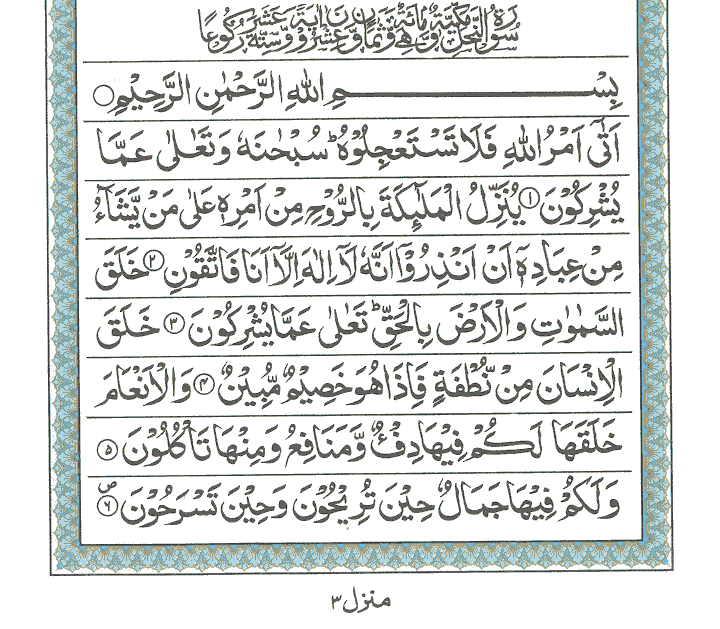 سُوْرَةُ النَّحْلِ مَكِّيَّةٌ وَّهِيَ مِائَةٌ وَّثَمَانٌ وَّعِشْرُوْنَ اٰيَةً وَّسِتَّةَ عَشَرَ رُكُوْعًا
بِسْمِ اللّٰهِ الرَّحْمٰنِ الرَّحِيْمِ ○
اَتٰۤى اَمْرُ اللّٰهِ فَلَا تَسْتَعْجِلُوْهُ ؕ سُبْحٰنَهٗ وَتَعٰلٰى عَمَّا
يُشْرِكُوْنَ ﴿۱﴾ يُنَزِّلُ الْمَلٰٓئِكَةَ بِالرُّوْحِ مِنْ اَمْرِهٖ عَلٰى مَنْ يَّشَآءُ
مِنْ عِبَادِهٖۤ اَنْ اَنْذِرُوْۤا اَنَّهٗ لَاۤ اِلٰهَ اِلَّاۤ اَنَا فَاتَّقُوْنِ ﴿۲﴾ خَلَقَ
السَّمٰوٰتِ وَالْاَرْضَ بِالْحَقِّ ؕ تَعٰلٰى عَمَّا يُشْرِكُوْنَ ﴿۳﴾ خَلَقَ
الْاِنْسَانَ مِنْ نُّطْفَةٍ فَاِذَا هُوَ خَصِيْمٌ مُّبِيْنٌ ﴿۴﴾ وَالْاَنْعَامَ
خَلَقَهَا لَكُمْ فِيْهَا دِفْءٌ وَّمَنَافِعُ وَمِنْهَا تَاْكُلُوْنَ ﴿۵﴾
وَلَكُمْ فِيْهَا جَمَالٌ حِيْنَ تُرِيْحُوْنَ وَحِيْنَ تَسْرَحُوْنَ ﴿۶﴾ ص
منزل ۳